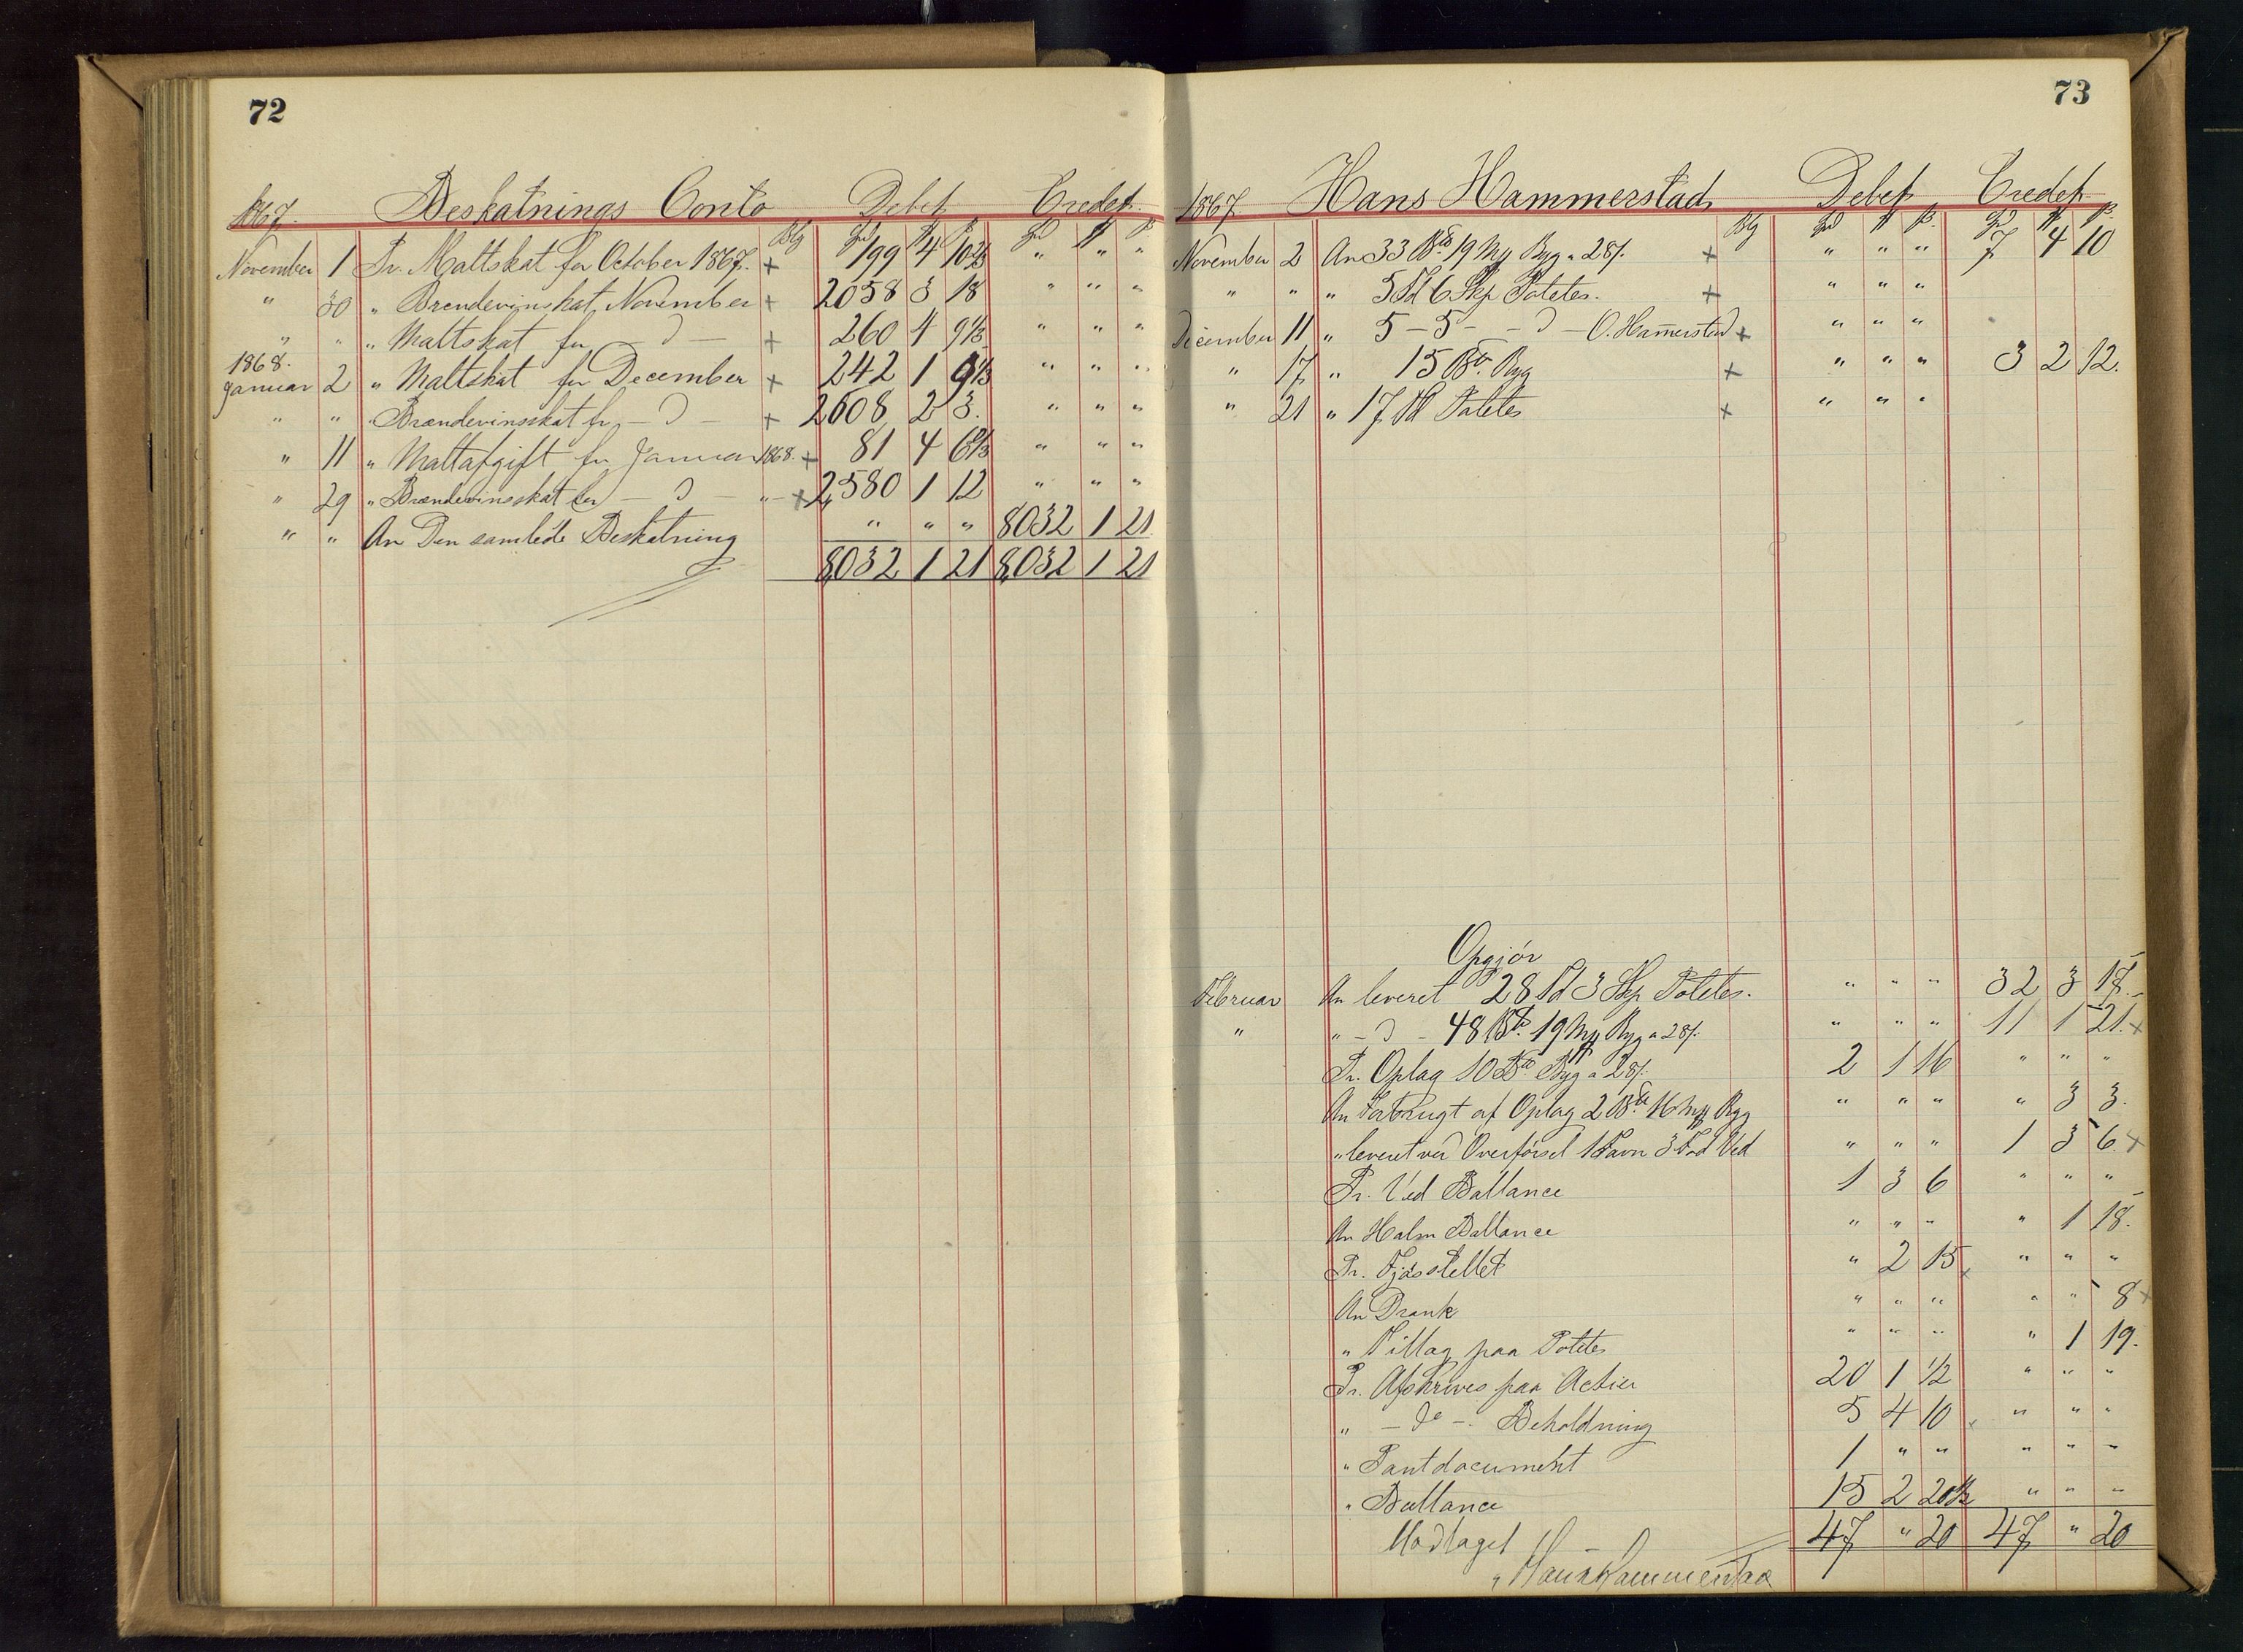 72
1867. Beskatnings Conto Debet Credet
Blg Spd # ß Spd # ß
November 1 Pr. Maltskat for October 1867. + 199 4 10 2/3 " " "
" 30 " Brendevinskat November + 2058 3 18 " " "
" " " Maltskat for - D - + 260 4 9 1/3 " " "
1868.
Januar 2 " Maltskat for December + 242 1 9 1/3 " " "
" " Brændevinsskat for - D - + 2608 2 3. " " "
" 11 " Maltafgift for Januar 1868. + 81 4 6 2/3 " " "
" 29 " Brændevinsskat for - D - " - + 2,580 1 12 " " "
" " An Den samlede Beskatning " " " 8032 1 21.
8,032 1 21 8,032 1 21
73
1867 Hans Hammerstad Debet Credet
Blg Spd # ß. Spd # ß.
November 2 An 33 Btd 19 Mk Byg a 28/. + " " " 7 4 10
" " " 5 Td 6 Skp Potetes. + " " "
December 11 " 5 - 5 - - D - O. Hamerstad + " " "
" 17 " 15 Btd. Byg + " " " 3 2 12.
" 21 " 17 Td Potetes + " " "
Opgjör
Februar An leveret 28 Td 3 Skp Potetes. " " " 32 3 18.
" " - D - 48 Btd. 19 Mk Byg a 28/. " " " 11 1 21. +
Pr. Oplag 10 Btd Byg a 28/. 2 1 16 " " "
An Forbrugt af Oplag 2 Btd 16 Mk Byg " " " " 3 3.
" leveret ved Overförsel 1 Favn 3 Fod Ved " " " 1 3 6. +
Pr. Ved Ballance 1 3 6 " " "
An Halm Ballance " " " " 1 18.
Pr. Fjösstellet " 2 15 " " "
An Drank " " " " " 8 +
" Tillag paa Potetes " " " " 1 19.
Pr. Afskrives paa Actier 20 1 1/2 " " "
" - do -. Beholdning 5 4 10 " " "
" Pantdocument 1 " " " " "
" Ballance 15 2 20 1/2 " " "
Modtaget 47 " 20 47 " 20
" Hans Hammerstad